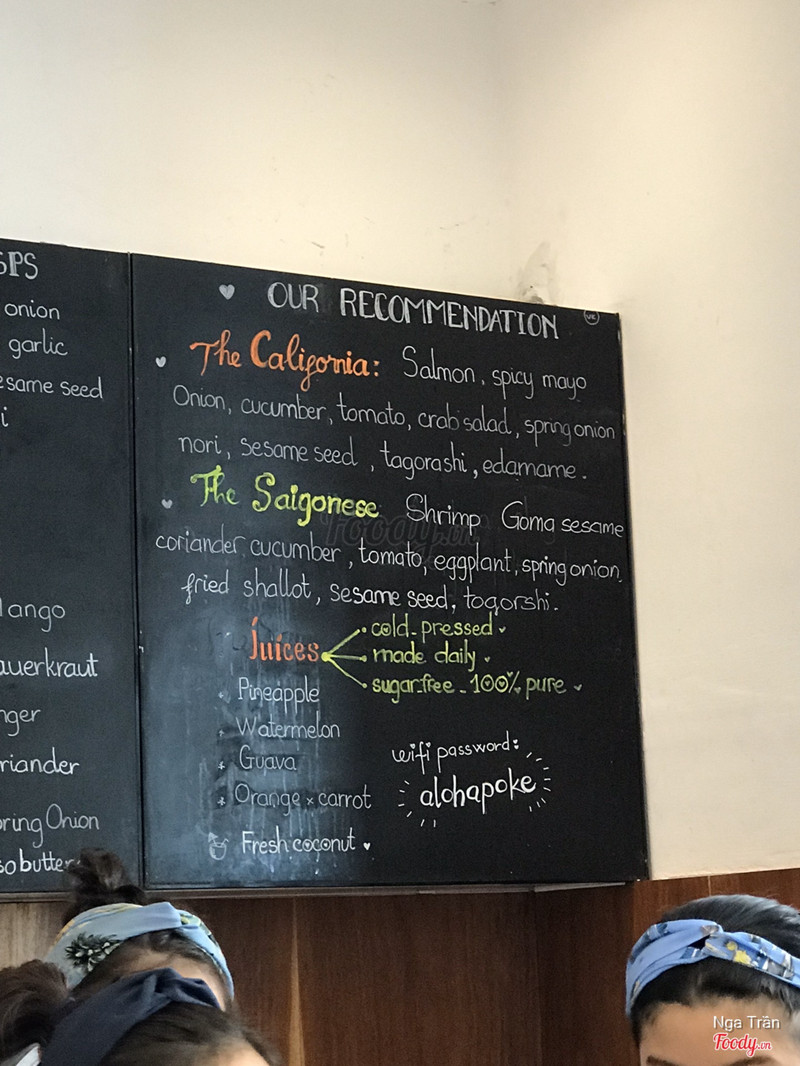 SPS
onion
garlic
sesame seed
i
ango
auerkraut
nger
riander
pring Onion
so butter
OUR RECOMMENDATION
The California: Salmon, spicy mayo
Onion, cucumber, tomato, crab salad, spring onion
nori, sesame seed, tagorashi, edamame.
The Saigonese Shrimp Goma sesame
coriander cucumber, tomato, eggplant, spring onion,
fried shallot, sesame seed, togorshi.
Juices
cold-pressed
made daily
sugar-free - 100% pure
Pineapple
Watermelon
Guava
Orange x carrot
Fresh coconut
wifi password:
alohapoke
Foody.vn
Nga Trần
Foody.vn